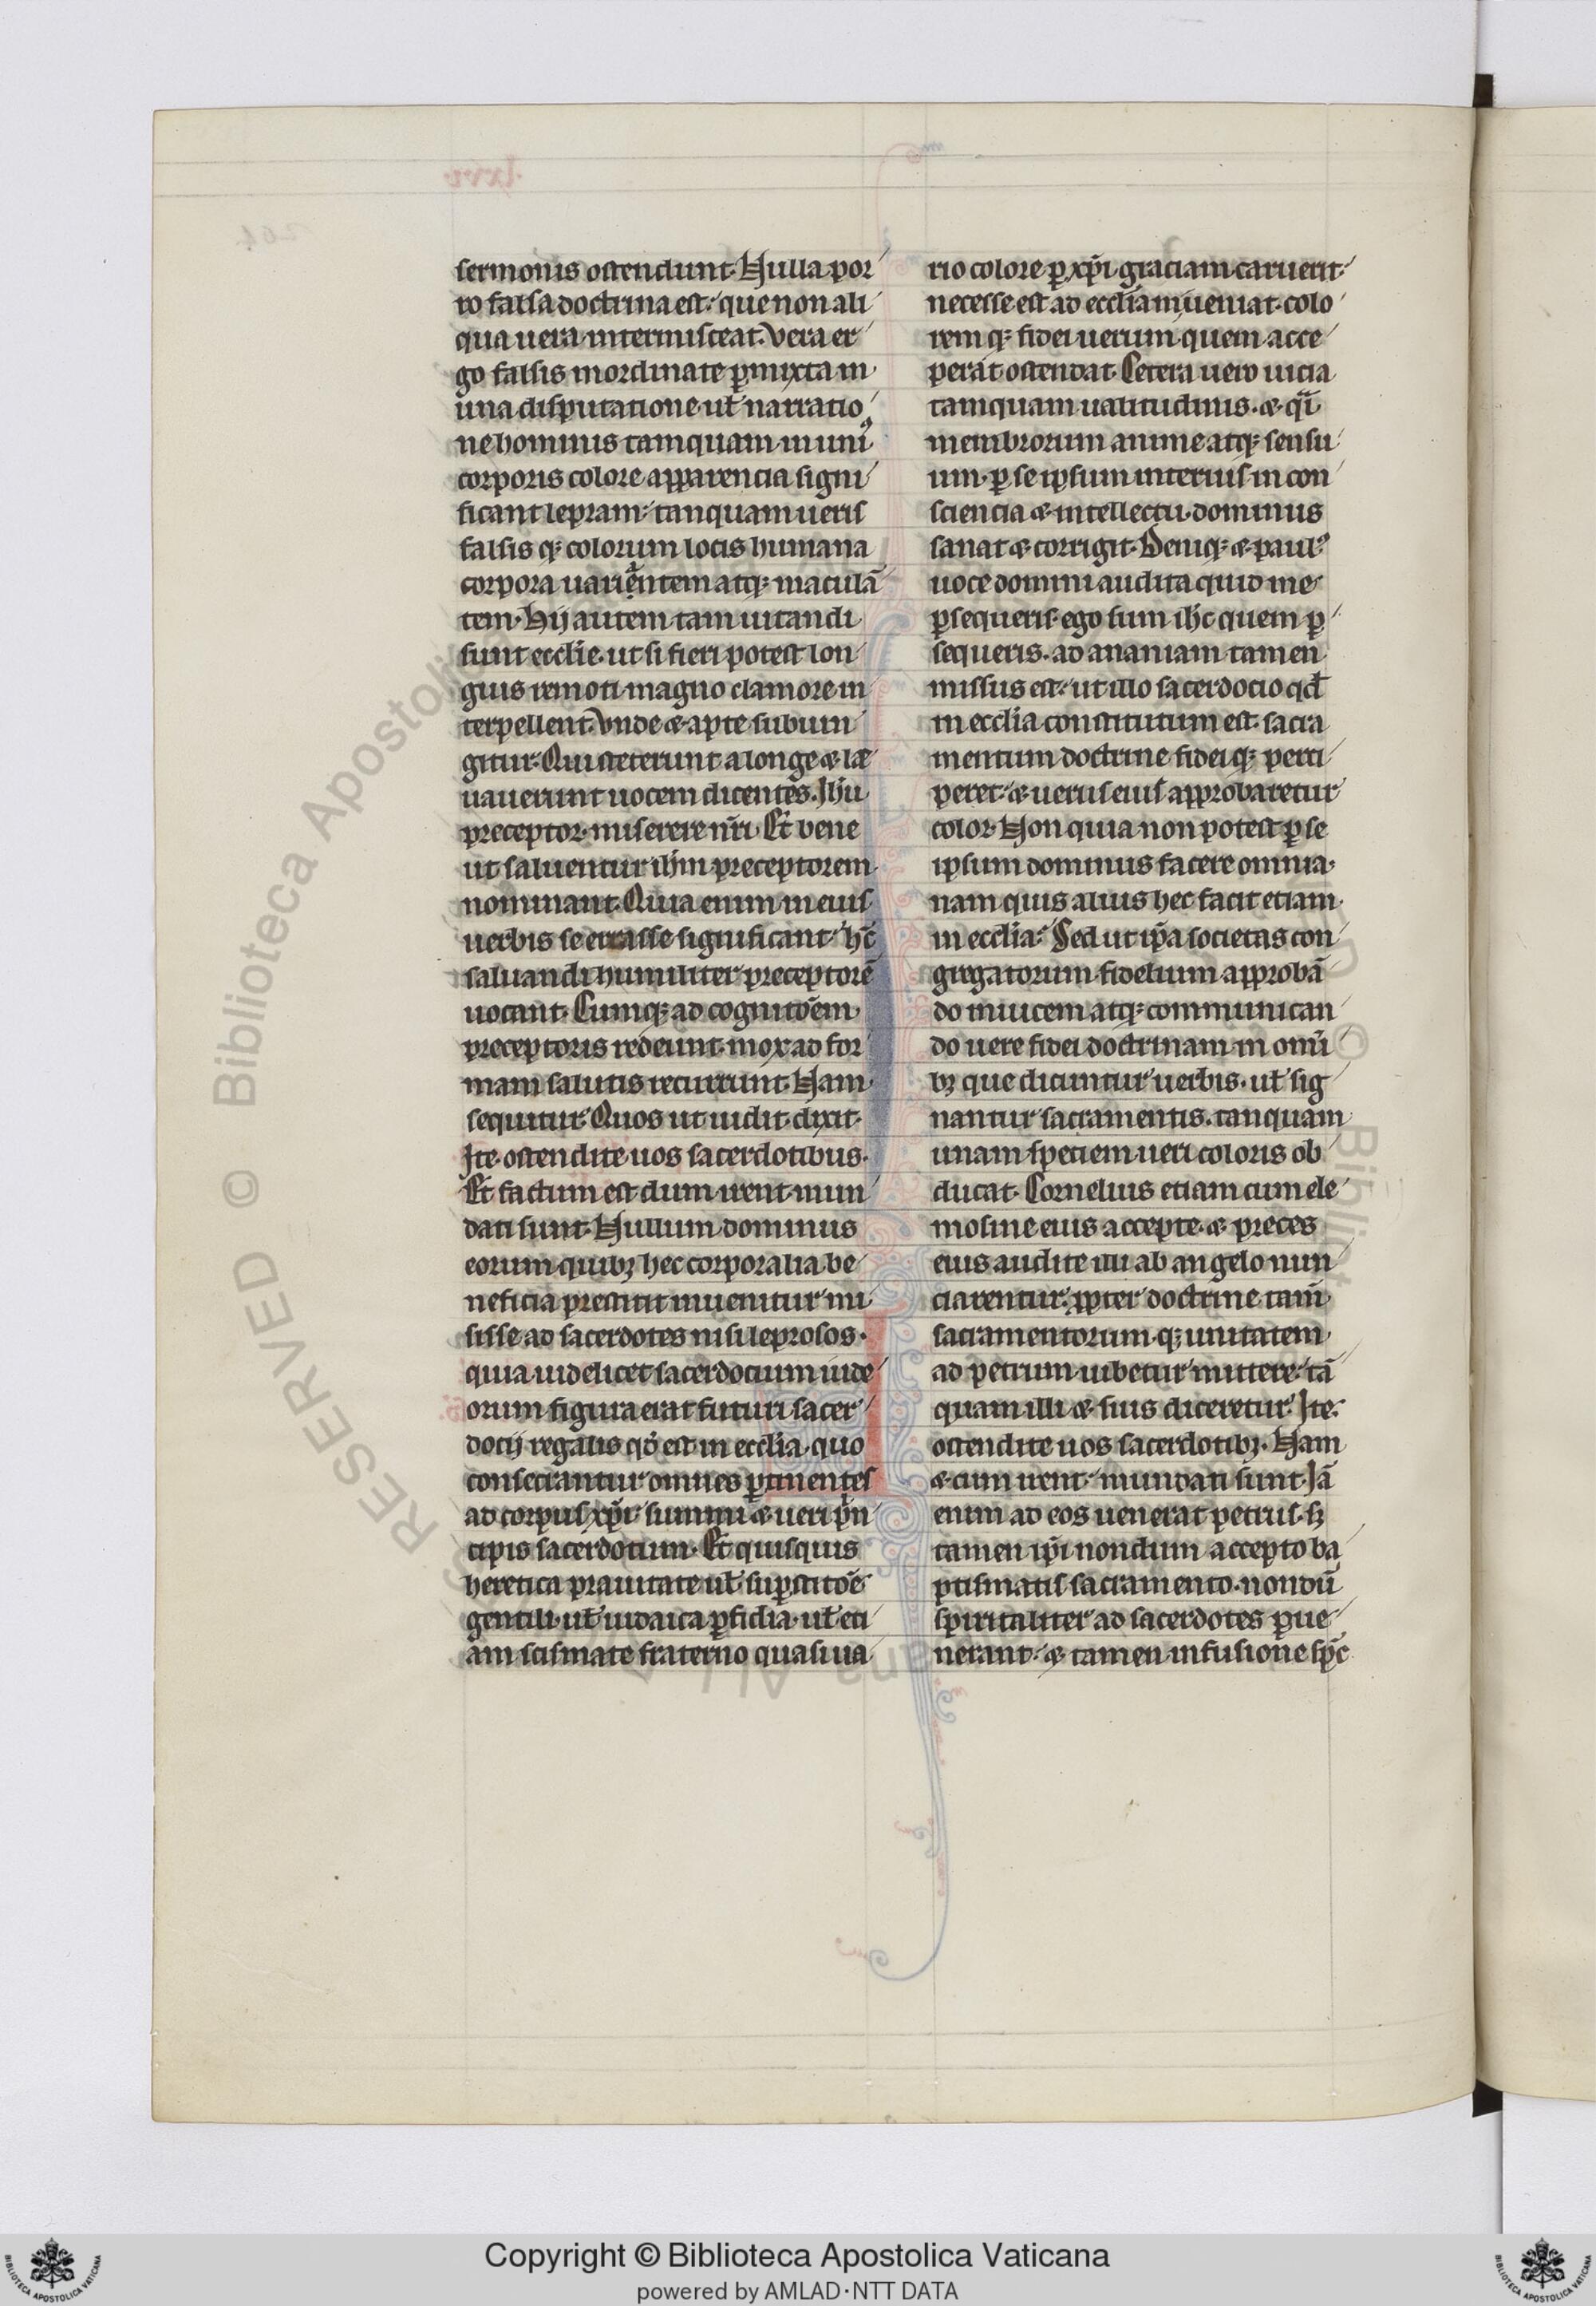 sermonis ostendunt. Nulla por
ro falsa doctrina est. que non ali
qua uera intermisceat. Vera er
go falsis inordinate ꝑmixta in
una disputatione uł narratio
ne hominis tamquam in uniꝰ
corporis colore apparencia signi
ficant lepram. tanquam ueris
falsis qꝫ colorum locis humana
corpora uariantem atqꝫ maculā
tem. Hij autem tam uitandi
sunt ecclīe. ut si fieri potest lon
gius remoti magno clamore in
terpellent. Vnde & apte subiun
gitur. Qui steterunt a longe & le
uauerunt uocem dicentes. Ihū
preceptor miserere nr̄i. Et bene
ut saluentur ihm̄ preceptorem
nominant. Quia enim in eius
uerbis se errasse significant. hc̄
saluandi humiliter preceptorē
uocant. Cumqꝫ ad cognitōem
preceptoris redeunt. mox ad for
mam salutis recurrunt. Nam
sequitur. Quos ut uidit dixit.
Ite ostendite uos sacerdotibus.
Et factum est dum irent mun
dati sunt. Nullum dominus
eorum quibꝫ hec corporalia be
neficia prestitit inuenitur mi
sisse ad sacerdotes nisi leprosos.
quia uidelicet sacerdocium iude
orum figura erat futuri sacer
docij regalis qd̄ est in ecclīa. quo
consecrantur omnes ꝑtinentes
ad corpus xp̄i. summi & ueri p̄n
cipis sacerdotum. Et quisquis
heretica prauitate uł suꝑstitōe
gentili. uł iudaica ꝑfidia. uł eti
am scismate fraterno quasi ua
rio colore ꝑ xp̄i graciam caruerit.
necesse est ad ecclīam ueniat. colo
rem qꝫ fidei uerum quem acce
perat ostendat. Cetera uero uicia
tamquam ualitudinis. & qͣi
membrorum anime atqꝫ sensu
um. ꝑ se ipsum interius in con
sciencia & intellectu dominus
sanat & corrigit. Deniqꝫ & paulꝰ
uoce domini audita quid me
ꝑsequeris. ego sum ihc̄ quem ꝑ
sequeris. ad ananiam tamen
missus est. ut illo sacerdocio qd̄
in ecclīa constitutum est. sacra
mentum doctrine fidei qꝫ perci
peret. & uerus eius approbaretur
color. Non quia non potest ꝑ se
ipsum dominus facere omnia.
nam quis alius hec facit etiam
in ecclīa. Sed ut ip̄a societas con
gregatorum fidelium approbā
do inuicem atqꝫ communican
do uere fidei doctrinam in omī
bꝫ que dicuntur uerbis. uł sig
nantur sacramentis. tanquam
unam speciem ueri coloris ob
ducat. Cornelius etiam cum ele
mosine eius accepte. & preces
eius audite illi ab angelo nun
ciarentur. ꝓpter doctrine tam̄
sacramentorum qꝫ unitatem
ad petrum iubetur mittere. tā
quam illi & suis diceretur. Ite.
ostendite uos sacerdotibꝫ. Nam
& cum irent. mundati sunt. Iā
enim ad eos uenerat petrus. sꝫ
tamen ip̄i nondum accepto ba
ptismatis sacramento. nondū
spiritaliter ad sacerdotes ꝑue
nerant. & tamen infusione sp̄c
Copyright © Biblioteca Apostolica Vaticana
powered by AMLAD·NTT DATA